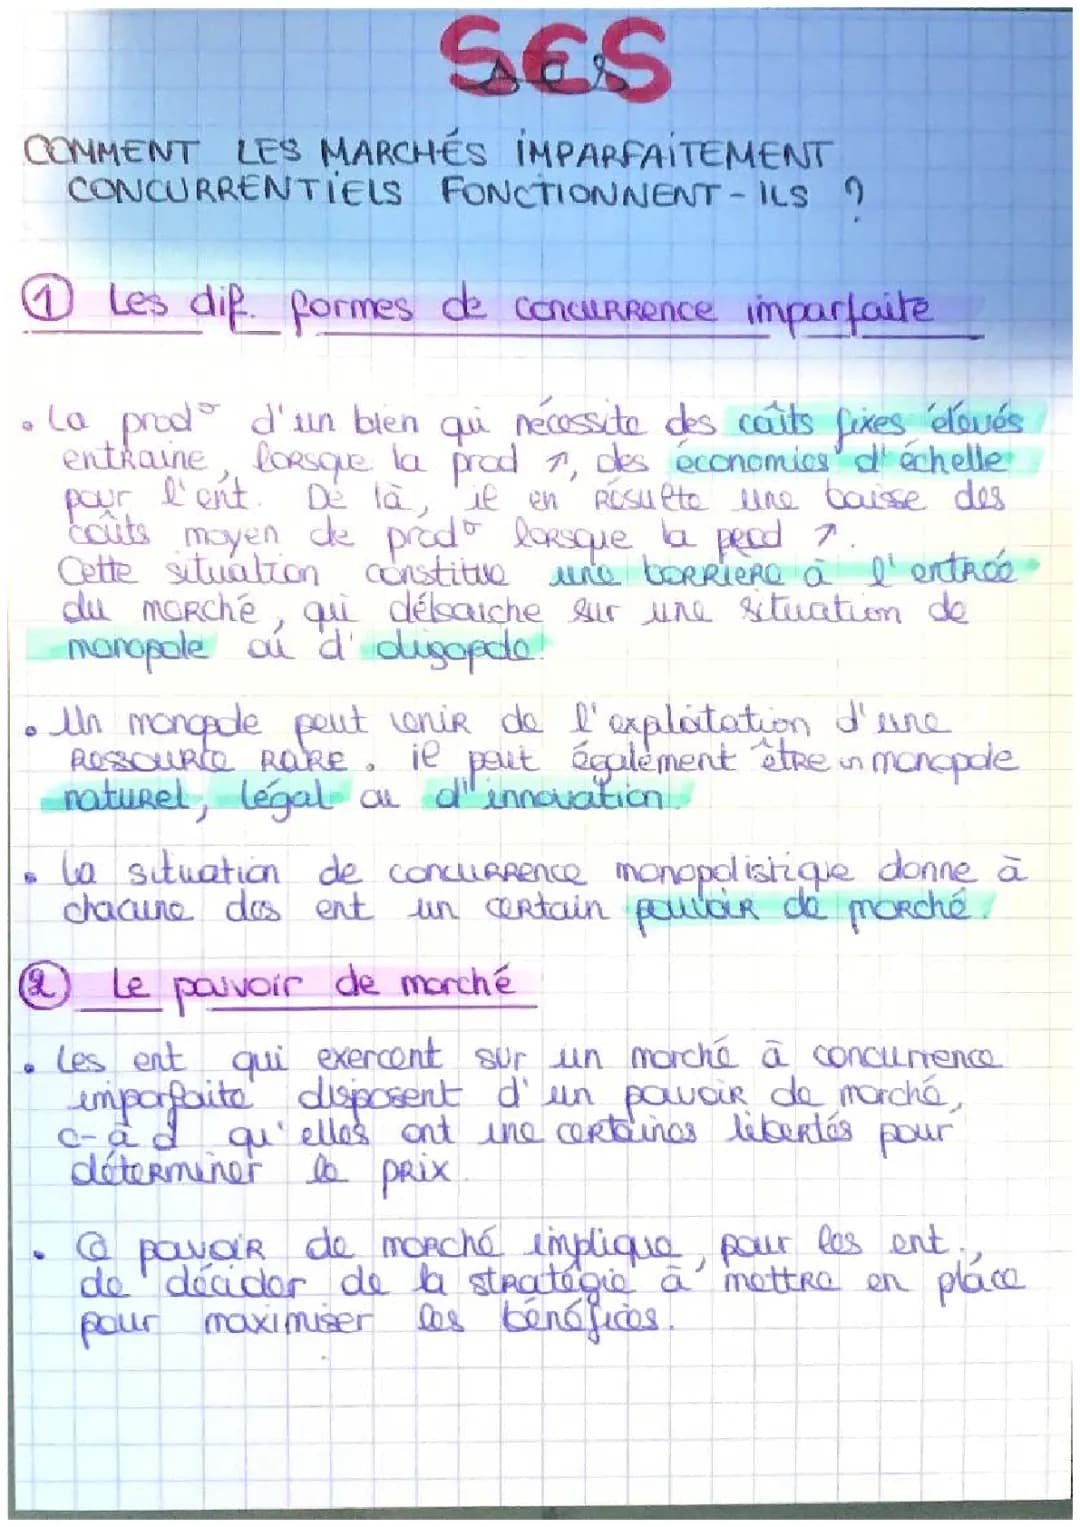 SES
COMMENT LES MARCHÉS IMPARFAITEMENT
CONCURRENTIELS FONCTIONNENT-ILS ?
① Les dif. formes de concurrence imparfaite
• La prod° d'un bien qui nécessite des coûts fixes élevés
entraine, lorsque la prod ↗, des économies d'échelle
pour l'ent. De là, il en résulte une baisse des
coûts moyen de prod° lorsque la prod ↗.
Cette situation constitue une barrière à l'entrée
du marché, qui débouche sur une situation de
monopole ou d'oligopole.
• Un monopole peut venir de l'exploitation d'une
ressource rare. il peut également être un monopole
naturel, légal ou d'innovation.
• La situation de concurrence monopolistique donne à
chacune des ent un certain pouvoir de marché.
② Le pouvoir de marché
• Les ent qui exercent sur un marché à concurrence
imparfaite disposent d'un pouvoir de marché,
c-à d qu'elles ont une certaines libertés pour
déterminer le prix.
• pouvoir de marché implique, pour les ent.,
de décider de la stratégie à mettre en place
pour maximiser les bénéfices.